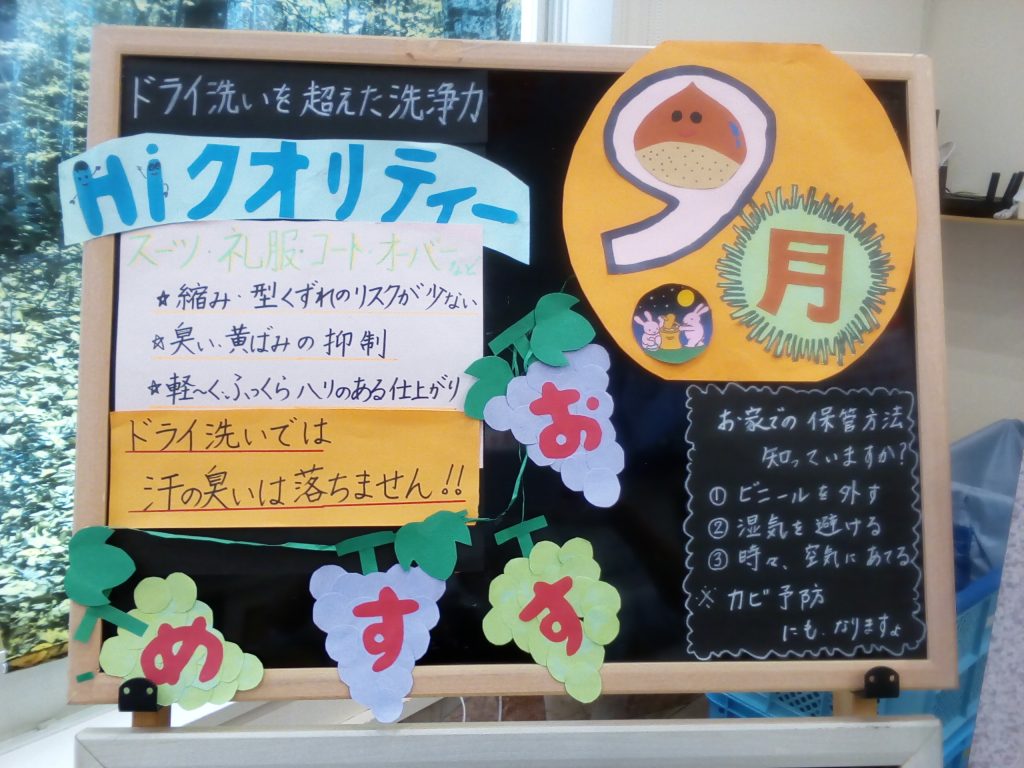 ドライ洗いを超えた洗浄力
Hiクオリティー
スーツ・礼服・コート・オーバーなど
☆縮み・型くずれのリスクが少ない
☆臭い・黄ばみの抑制
☆軽~く、ふっくらハリのある仕上がり
ドライ洗いでは
汗の臭いは落ちません!!
おすすめ
9月
お家での保管方法
知っていますか?
① ビニールを外す
② 湿気を避ける
③ 時々、空気にあてる
※ カビ予防
にも、なりますょ